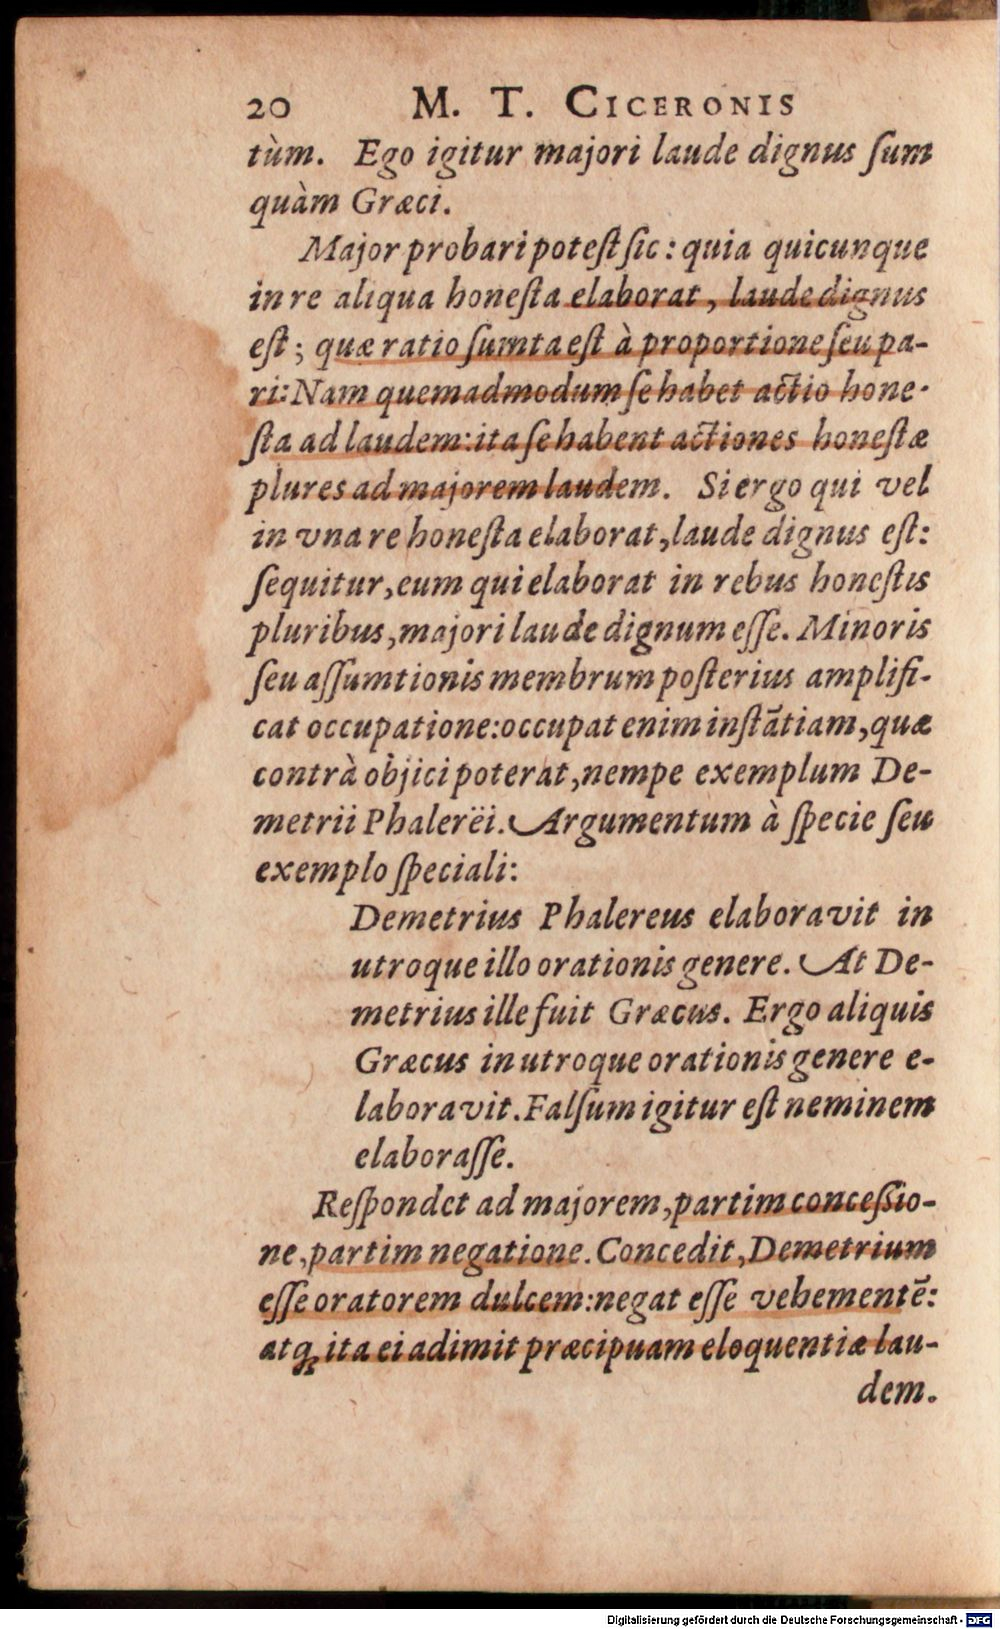 20 M. T. CICERONIS
tùm. Ego igitur majori laude dignus ſum
quàm Græci.
Major probari poteſt ſic: quia quicunque
in re aliqua honeſta elaborat, laude dignus
eſt; quæ ratio ſumta eſt à proportione ſeu pa-
ri: Nam quemadmodum ſe habet actio hone-
ſta ad laudem: ita ſe habent actiones honeſtæ
plures ad majorem laudem. Si ergo qui vel
in vna re honeſta elaborat, laude dignus eſt:
ſequitur, eum qui elaborat in rebus honeſtis
pluribus, majori laude dignum eſſe. Minoris
ſeu aſſumtionis membrum poſterius amplifi-
cat occupatione: occupat enim inſtātiam, quæ
contrà objici poterat, nempe exemplum De-
metrii Phalerëi. Argumentum à ſpecie ſeu
exemplo ſpeciali:
Demetrius Phalereus elaboravit in
utroque illo orationis genere. At De-
metrius ille fuit Græcus. Ergo aliquis
Græcus in utroque orationis genere e-
laboravit. Falſum igitur eſt neminem
elaboraſſe.
Reſpondet ad majorem, partim conceßio-
ne, partim negatione. Concedit, Demetrium
eſſe oratorem dulcem: negat eſſe vehementē:
atq́; ita ei adimit præcipuam eloquentiæ lau-
dem.
Digitalisierung gefördert durch die Deutsche Forschungsgemeinschaft - DFG